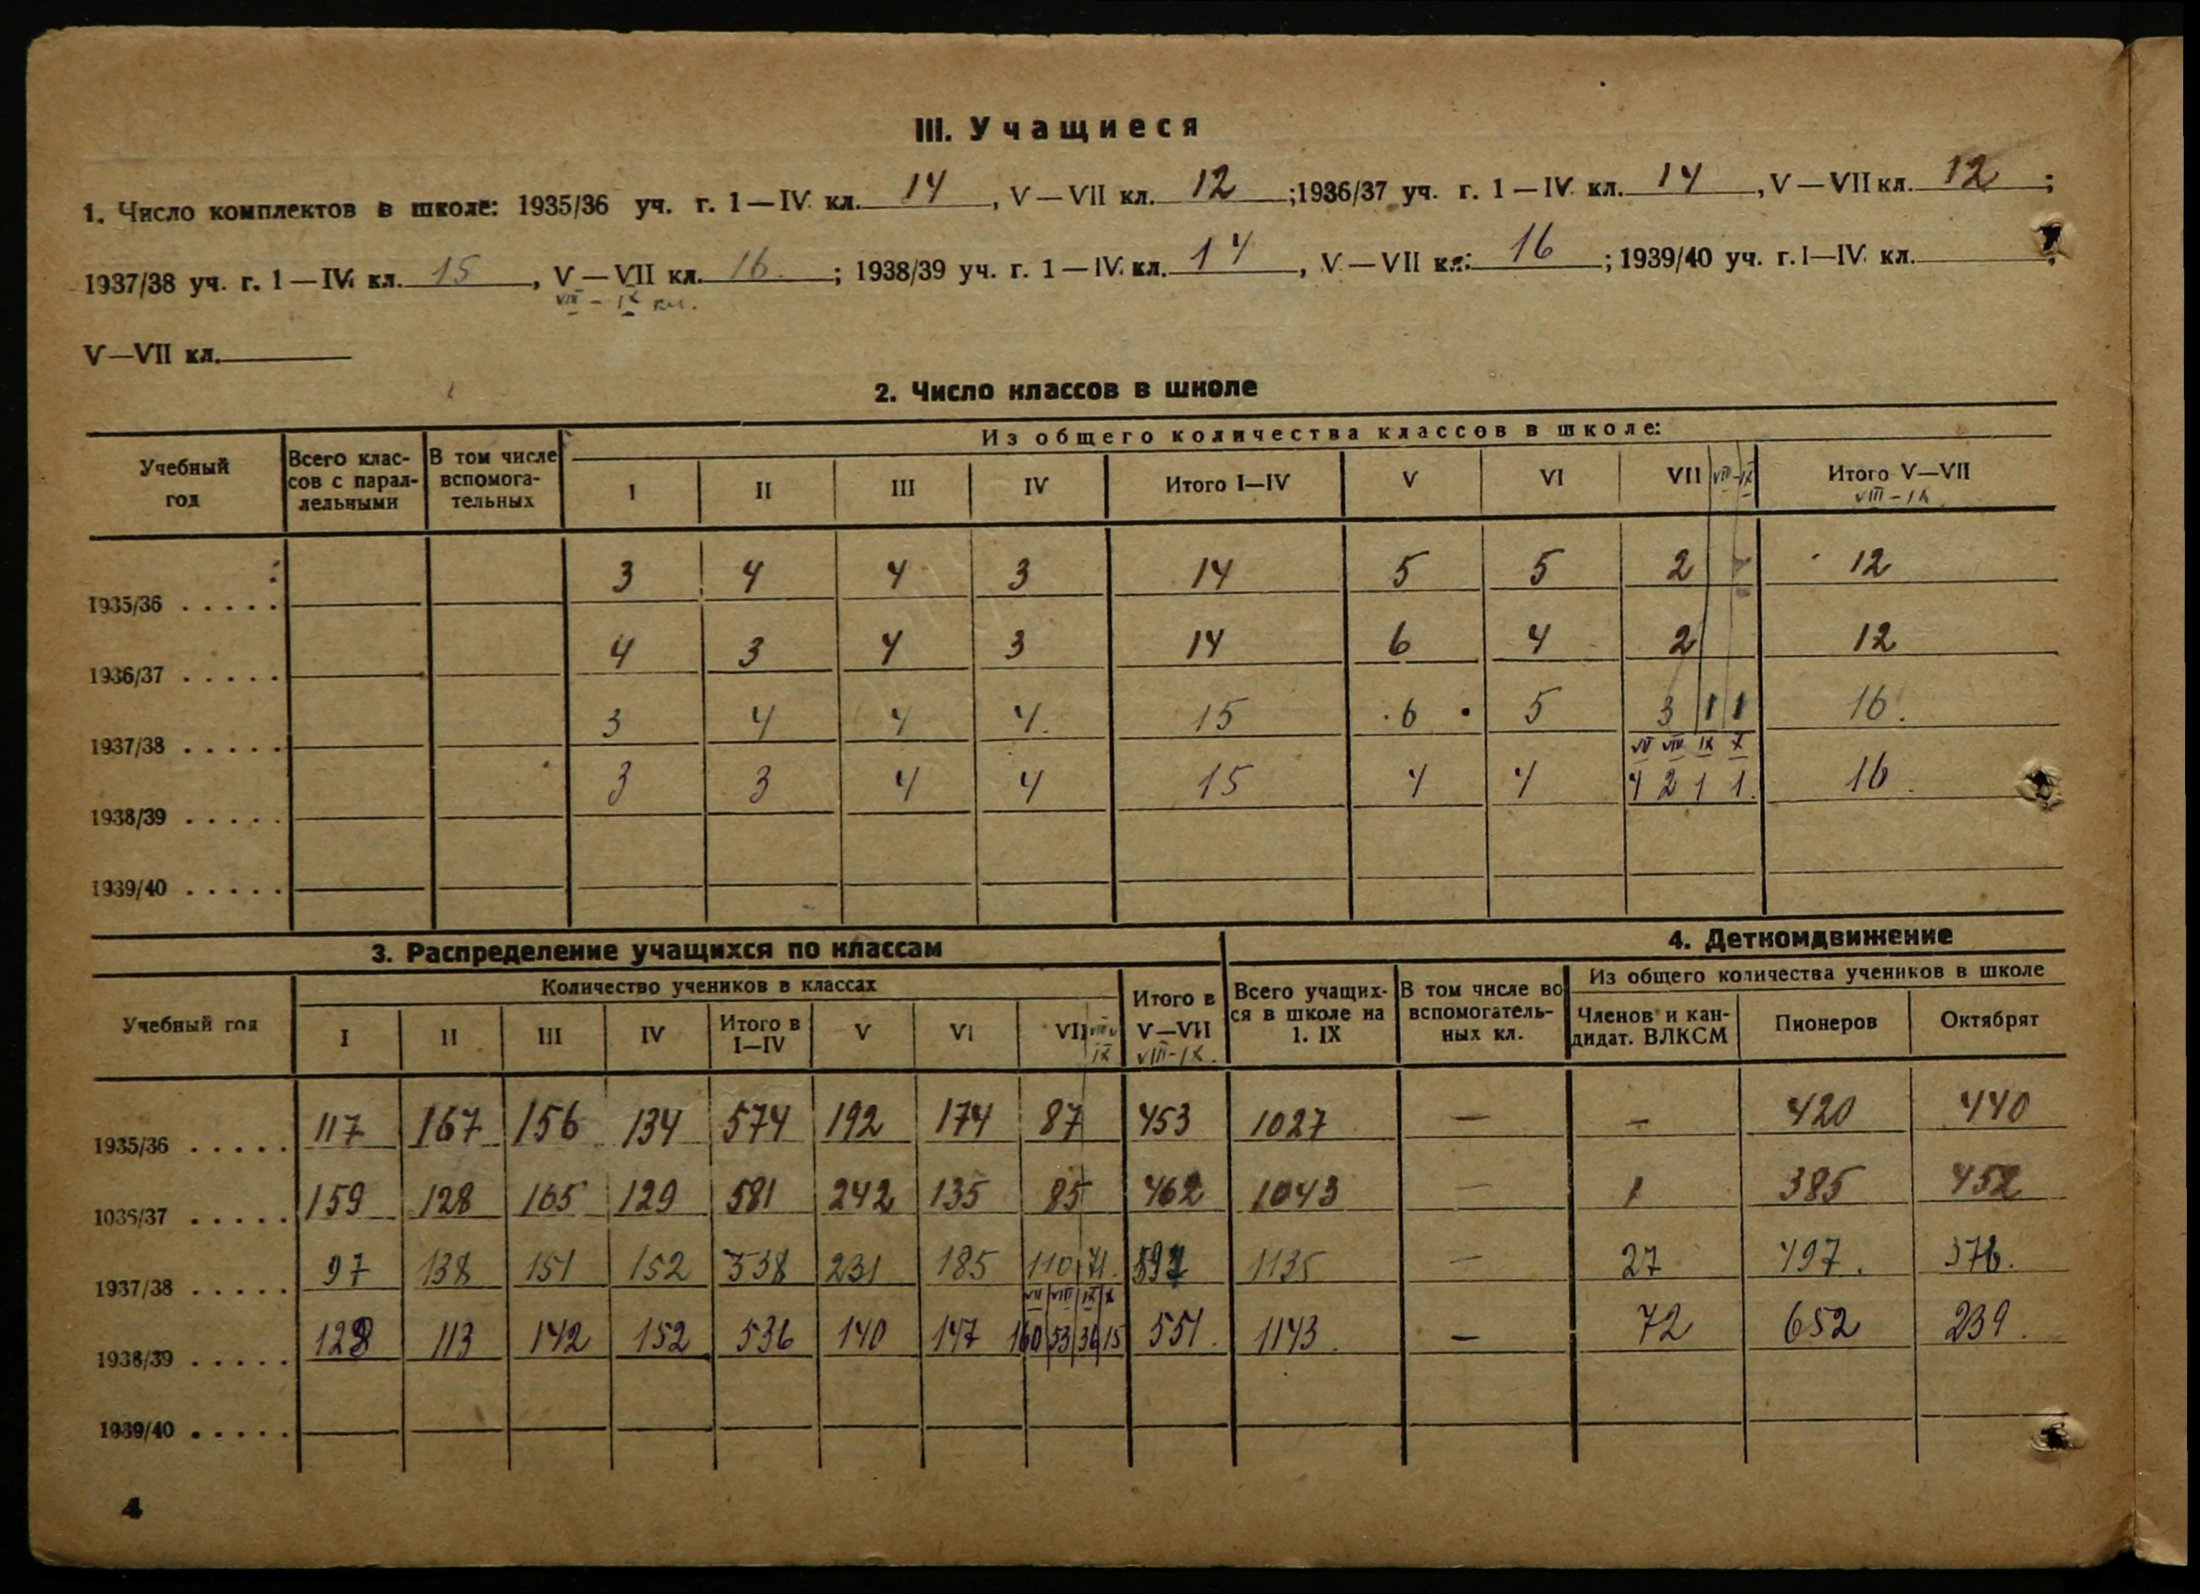 III. Учащиеся
1. Число комплектов в школе: 1935/36 уч. г. 1—IV кл. 14, V—VII кл. 12; 1936/37 уч. г. 1—IV кл. 14, V—VII кл. 12;
1937/38 уч. г. 1—IV кл. 15, V—VII кл. 16; 1938/39 уч. г. 1—IV кл. 14, V—VII кл. 16; 1939/40 уч. г. I—IV кл.
VIII – IX кл.
V—VII кл.
2. Число классов в школе
Учебный год | Всего классов с параллельными | В том числе вспомогательных | Из общего количества классов в школе:
I | II | III | IV | Итого I—IV | V | VI | VII | VIII–IX | Итого V—VII VIII–IX
1935/36 . . . . . 3 4 4 3 14 5 5 2 12
1936/37 . . . . . 4 3 4 3 14 6 4 2 12
1937/38 . . . . . 3 4 4 4 15 6 5 3 1 1 16
VII VIII IX X
1938/39 . . . . . 3 3 4 4 15 4 4 4 2 1 1 16
1939/40 . . . . .
3. Распределение учащихся по классам
4. Деткомдвижение
Учебный год | Количество учеников в классах | Итого в V—VII VIII–IX. | Всего учащихся в школе на 1. IX | В том числе во вспомогательных кл. | Из общего количества учеников в школе
I | II | III | IV | Итого в I—IV | V | VI | VII | VIII и IX | Членов и кандидат. ВЛКСМ | Пионеров | Октябрят
1935/36 . . . . . 117 167 156 134 574 192 174 87 453 1027 — — 420 440
1936/37 . . . . . 159 128 165 129 581 242 135 85 462 1043 — 1 385 452
1937/38 . . . . . 97 138 151 152 538 231 185 110 71 597 1135 — 27 497. 376.
VII VIII IX X
1938/39 . . . . . 128 113 142 152 536 140 147 160 53 36 15 551. 1143. — 72 652 239.
1939/40 . . . . .
4